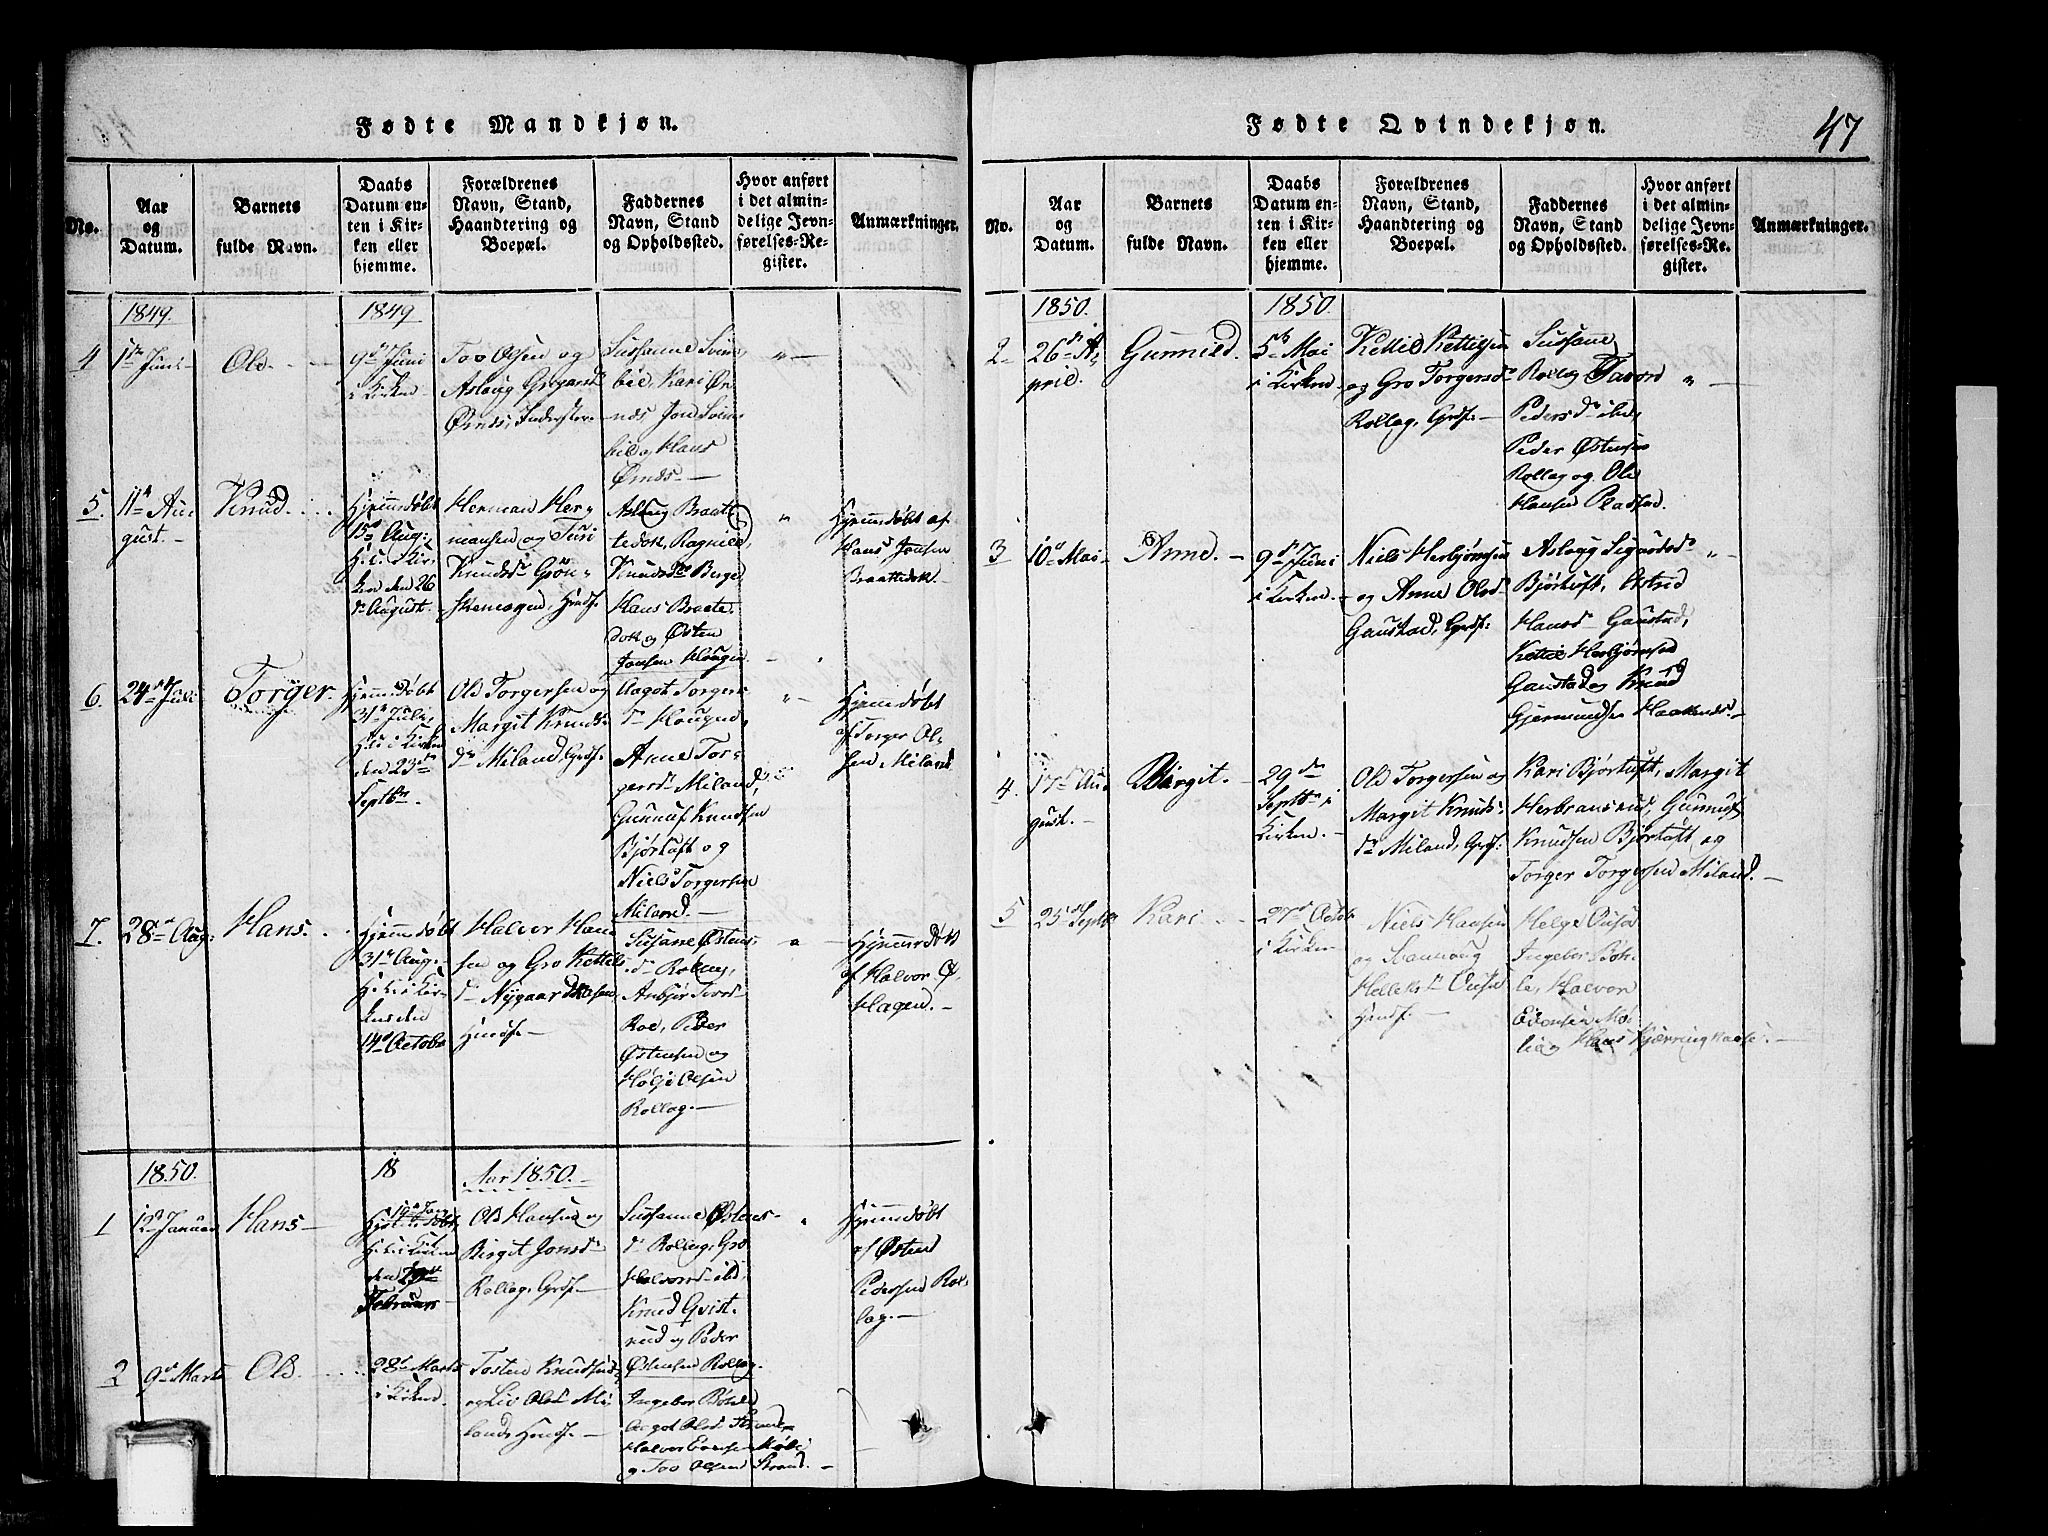 Fødte Mandkjøn.
No.
Aar
og
Datum.
Barnets
fulde Navn.
Daabs
Datum en-
ten i Kir-
ken eller
hjemme.
Forældrenes
Navn, Stand,
Haandtering og
Boepæl.
Faddernes
Navn, Stand
og Opholdssted.
Hvor anført
i det almin-
delige Jevn-
førelses-Re-
gister.
Anmærkninger.
1849.
1849
4
1ste Juni
Ole.
9de Juni
i Kirken
Tov Olsen og
Aslaug Gregarsd
Ørnds,
Sussanne Svine-
bie, Kari Ør-
nds, Jon Svine
bie og Hans
Ørnds.
5.
11te Au-
gust.
Knud.
Hjemmedøbt
15de Aug:
i Kir-
ken den 26
August.
Herman Her-
mansen og Turi
Knudsd Grøn-
skemogen, Hmdf.
Aslaug Braate-
dok, Ragnild
Knudsd Berget
Hans Braate
dok og Østen
Jonsen Hougen.
Hjemmedøbt af
Hans Jonsen
Braatedok.
6.
24de Juli
Torger.
Hjemmedøbt
31te Juli,
i Kirken
den 23de
Septbr.
Ole Torgersen og
Margit Knuds-
dr Miland, Grdf.
Aagot Torgers
dr Hougen,
Anne Tor-
gersd Miland,
Gunnuf Knudsen
Bjørtuft og
Niels Torgersen
Miland.
Hjemmedøbt
af Torger Ol-
sen Miland
7.
28de Aug:
Hans.
Hjemmedøbt
31te Aug.
i Kir-
ken den
14de Octobr
Halvor Han
sen og Gro Kettels
dr Nygaard
Hmdf.
Susanne Østens-
dr Rollag,
Anbjør
Roe, Peder
Østensen og
Hølje Olsen
Rollag.
Hjemmedøbt
af Halvor Ø.
Hagen.
1850.
18
Aar 1850.
1
12te Januar
Hans
19de Jan
i Kirken
den
Februar
Ole Hansen og
Birgit Jonsd
Rollag, Grdf.
Sussanne Østens-
dr Rollag, Gro
Halvorsd ibd,
Knud Qvist-
rud og Peder
Østensen Rollag.
Hjemmedøbt
af Østen
Pedersen Rol-
lag.
2
9de Marts
Ole.
28de Marts
i Kirken.
Tosten Knudsen
og Liv Olsd Mi-
land, Hmdf.
Ingebor Bøhle
Aagot Olsd
Halvor Evensen
og Tov Olsen Strand.
Fødte Qvindekjøn.
47
No.
Aar
og
Datum.
Barnets
fulde Navn.
Daabs
Datum en-
ten i Kir-
ken eller
hjemme.
Forældrenes
Navn, Stand,
Haandtering og
Boepæl.
Faddernes
Navn, Stand
og Opholdssted.
Hvor anført
i det almin-
delige Jevn-
førelses-Re-
gister.
Anmærkninger.
1850.
1850.
2
26de A-
pril.
Gunnild.
5te Mai
i Kirken
Kettil Kettilsen
og Gro Torgersd
Rollag, Grdf.
Sussanne
Rollag
Pedersdr ibd,
Peder Østensen
Rollag og Ole
Hansen
3
10de Mai
Anne.
9de Juni
i Kirken.
Niels Herbjørnsen
og Anne Olsd
Gaustad, Grdf:
Aslaug Sigurdsd
Bjørtuft, Astrid
Hansd Gaustad,
Kettil Herbjørnsen
Gaustad og Knud
Gjermundsen Haakenæs.
4.
17de Au-
gust.
Birgit.
29de
Septbr i
Kirken.
Ole Torgersen og
Margit Knuds-
dr Miland, Grdf.
Kari Bjørtuft, Margit
Herbransrud, Gunnuf
Knudsen Bjørtuft og
Torger Torgersen Miland.
5
25de Septbr
Kari
27de Octob
i Kirken
Niels Hansen
og
Helleks dr
Hmdf.
Helge
Ingebor Böh-
le, Halvor
Evensen Mø-
lie og Hans Kjerringhaase.